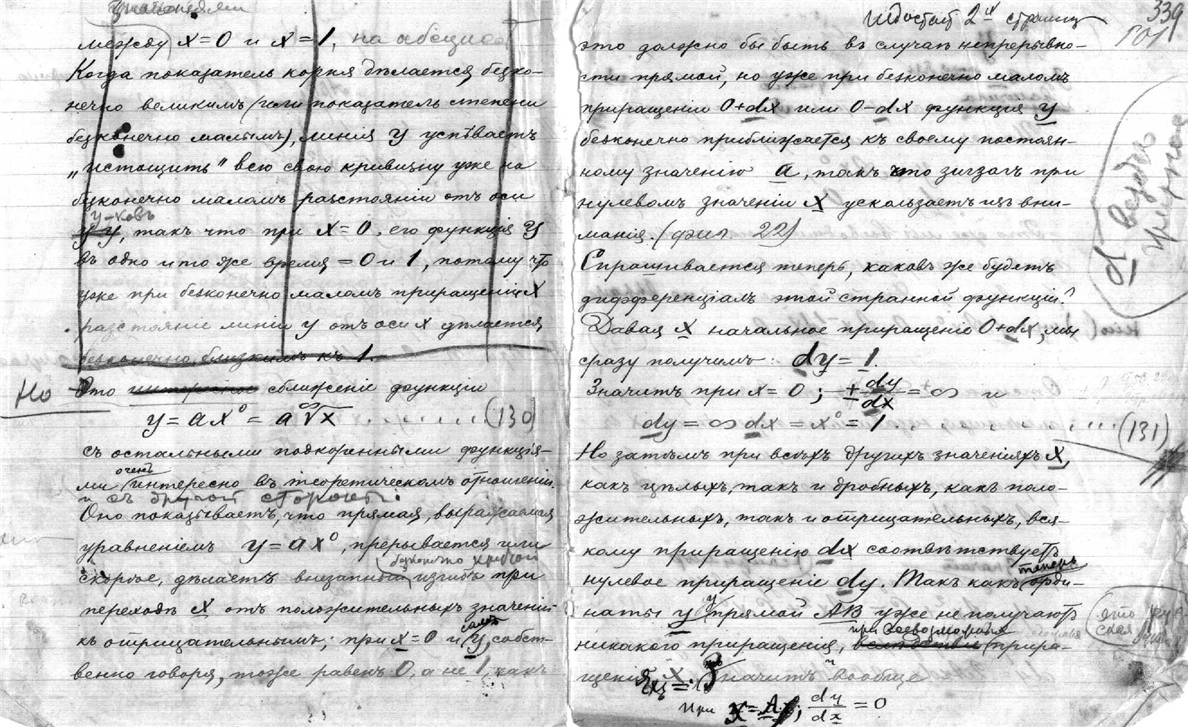 между x=0 и x=1, на абсцисс
Когда показатель корня дѣлается безко-
нечно великимъ (или показатель степени
безконечно малымъ), линія y успѣваетъ
„истощить" всю свою кривизну уже на
безконечно маломъ разстояніи отъ оси
y-ковъ
y y, такъ что при x=0, его функція y
въ одно и то же время =0 и 1, потому что
уже при безконечно маломъ приращеніи x
разстояніе линіи y отъ оси x дѣлается
безконечно близкимъ къ 1.
Но Это интересное сближеніе функціи
y = a x⁰ = a ∞√x ......... (130)
съ остальными подкоренными функція-
очень
ми интересно въ теоретическомъ отношеніи,
и съ другой стороны:
Оно показываетъ, что прямая, выражаемая
уравненіемъ y=ax⁰, прерывается или
безконечно
скорѣе, дѣлаетъ внезапный изгибъ при
переходѣ x отъ положительныхъ значеній
къ отрицательнымъ; при x=0 и y, собст-
самъ
венно говоря, тоже равенъ 0, а не 1, какъ
2й страницы
339
это должно бы быть въ случаѣ непрерывно-
сти прямой, но уже при безконечно маломъ
приращеніи 0+dx или 0−dx функція y
безконечно приближается къ своему постоян-
ному значенію a, такъ что зигзагъ при
нулевомъ значеніи x ускользаетъ изъ вни-
манія. (фиг. 22)
Спрашивается теперь, каковъ же будетъ
дифференціалъ этой странной функціи?
Давая x начальное приращеніе 0+dx, мы
сразу получимъ: dy = 1.
Значитъ при x = 0; ± dy/dx = ∞ и
dy = ∞ dx = x⁰ = 1 .... (131)
Но затѣмъ при всѣхъ другихъ значеніяхъ x,
какъ цѣлыхъ, такъ и дробныхъ, какъ поло-
жительныхъ, такъ и отрицательныхъ, вся-
кому приращенію dx соотвѣтствуетъ
теперь
нулевое приращеніе dy. Такъ какъ орди-
наты y у прямой AB уже не получаютъ
при
никакого приращенія, вслѣдствіе прира-
щенія x. Значитъ вообще
при
dy/dx = 0
a вездѣ